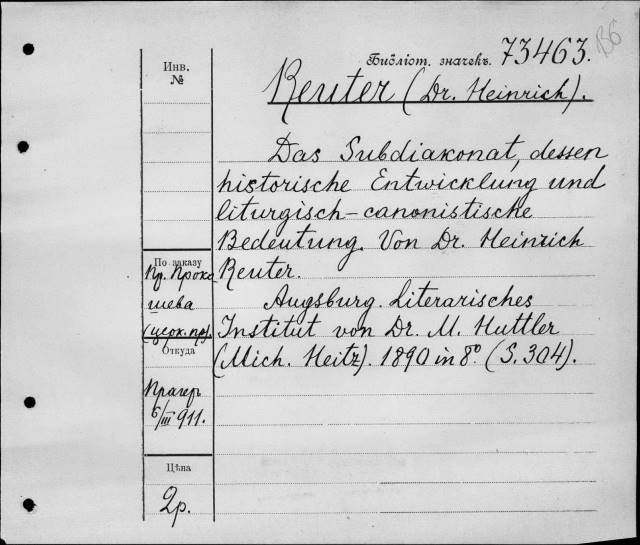 Библіот. значекъ. 73463.
Инв.
№
Reuter (Dr. Heinrich).
Das Subdiakonat, dessen
historische Entwicklung und
liturgisch-canonistische
Bedeutung. Von Dr. Heinrich
Reuter.
Augsburg. Literarisches
Institut von Dr. M. Huttler
(Mich. Heitz). 1890 in 8º. (S. 304).
По заказу
Пр. Проко
шева
(церк. пр).
Откуда
Прагеръ
6/III 911.
Цѣна
2р.